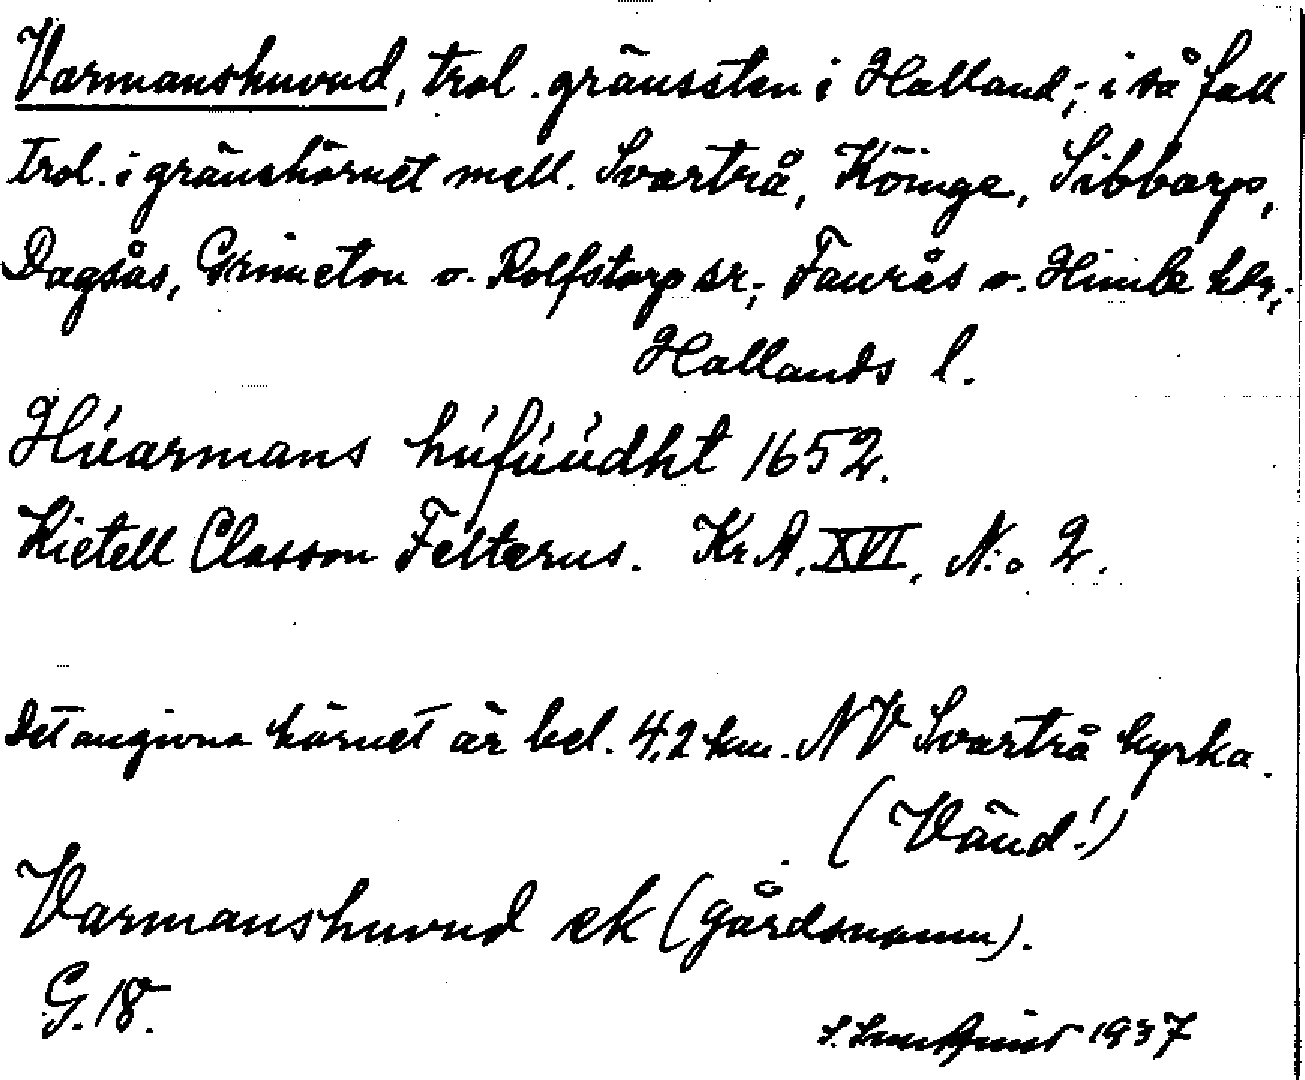 Varmanshuvud, trol. gränssten i Halland; i så fall
trol. i gränshörnet mell. Svartrå, Köinge, Sibbarp,
Dagsås, Grimeton o. Rolfstorp sr; Faurås o. Himle hdr;
Hallands l.
Húarmans húfúúdht 1652.
Kietell Classon Felterus. KrA. XVI. N:o 2.
Det angivna hörnet är bel. 4,2 km. NV Svartrå kyrka.
(Vänd!)
Varmanshuvud ek (gårdsnamn).
G. 18.
1937